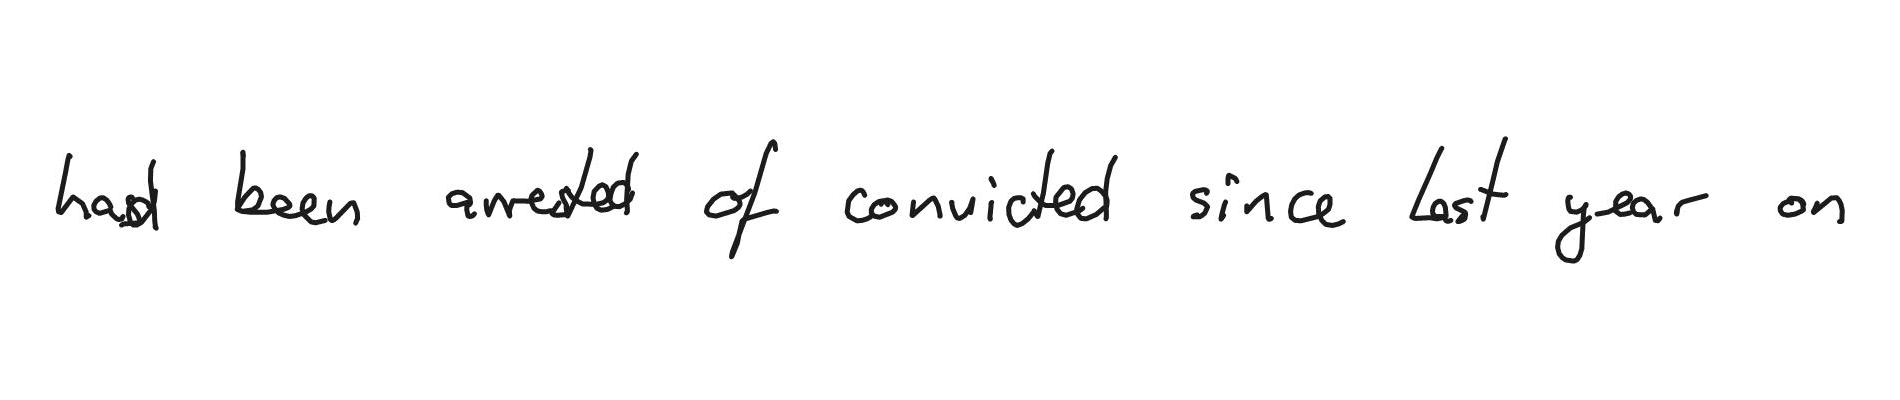 had been arrested of convicted since last year on